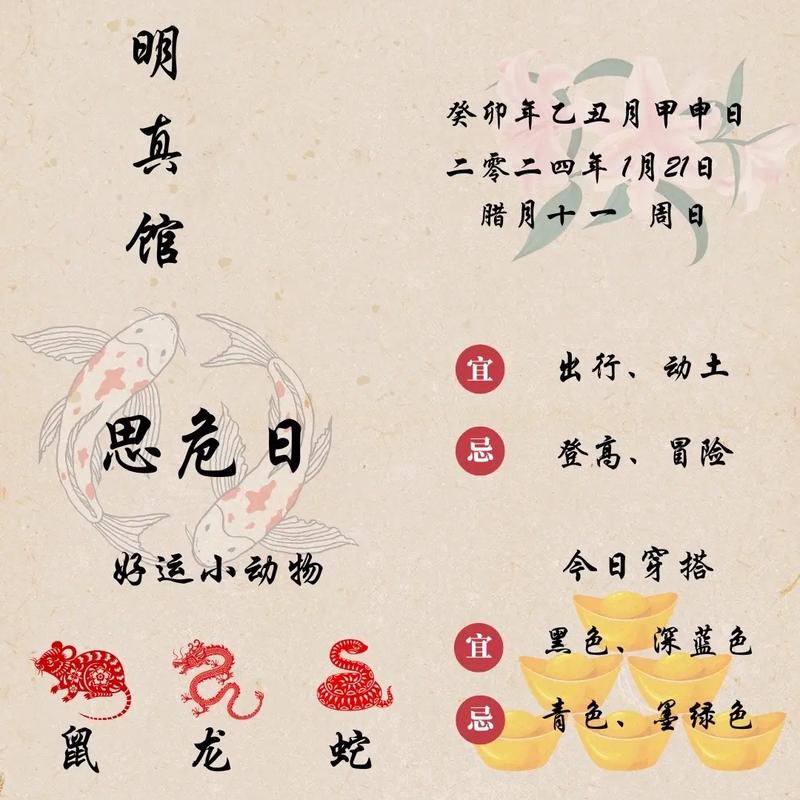 明真馆
癸卯年乙丑月甲申日
二零二四年1月21日
腊月十一 周日
思危日
好运小动物
鼠 龙 蛇
宜 出行、动土
忌 登高、冒险
今日穿搭
宜 黑色、深蓝色
忌 青色、墨绿色